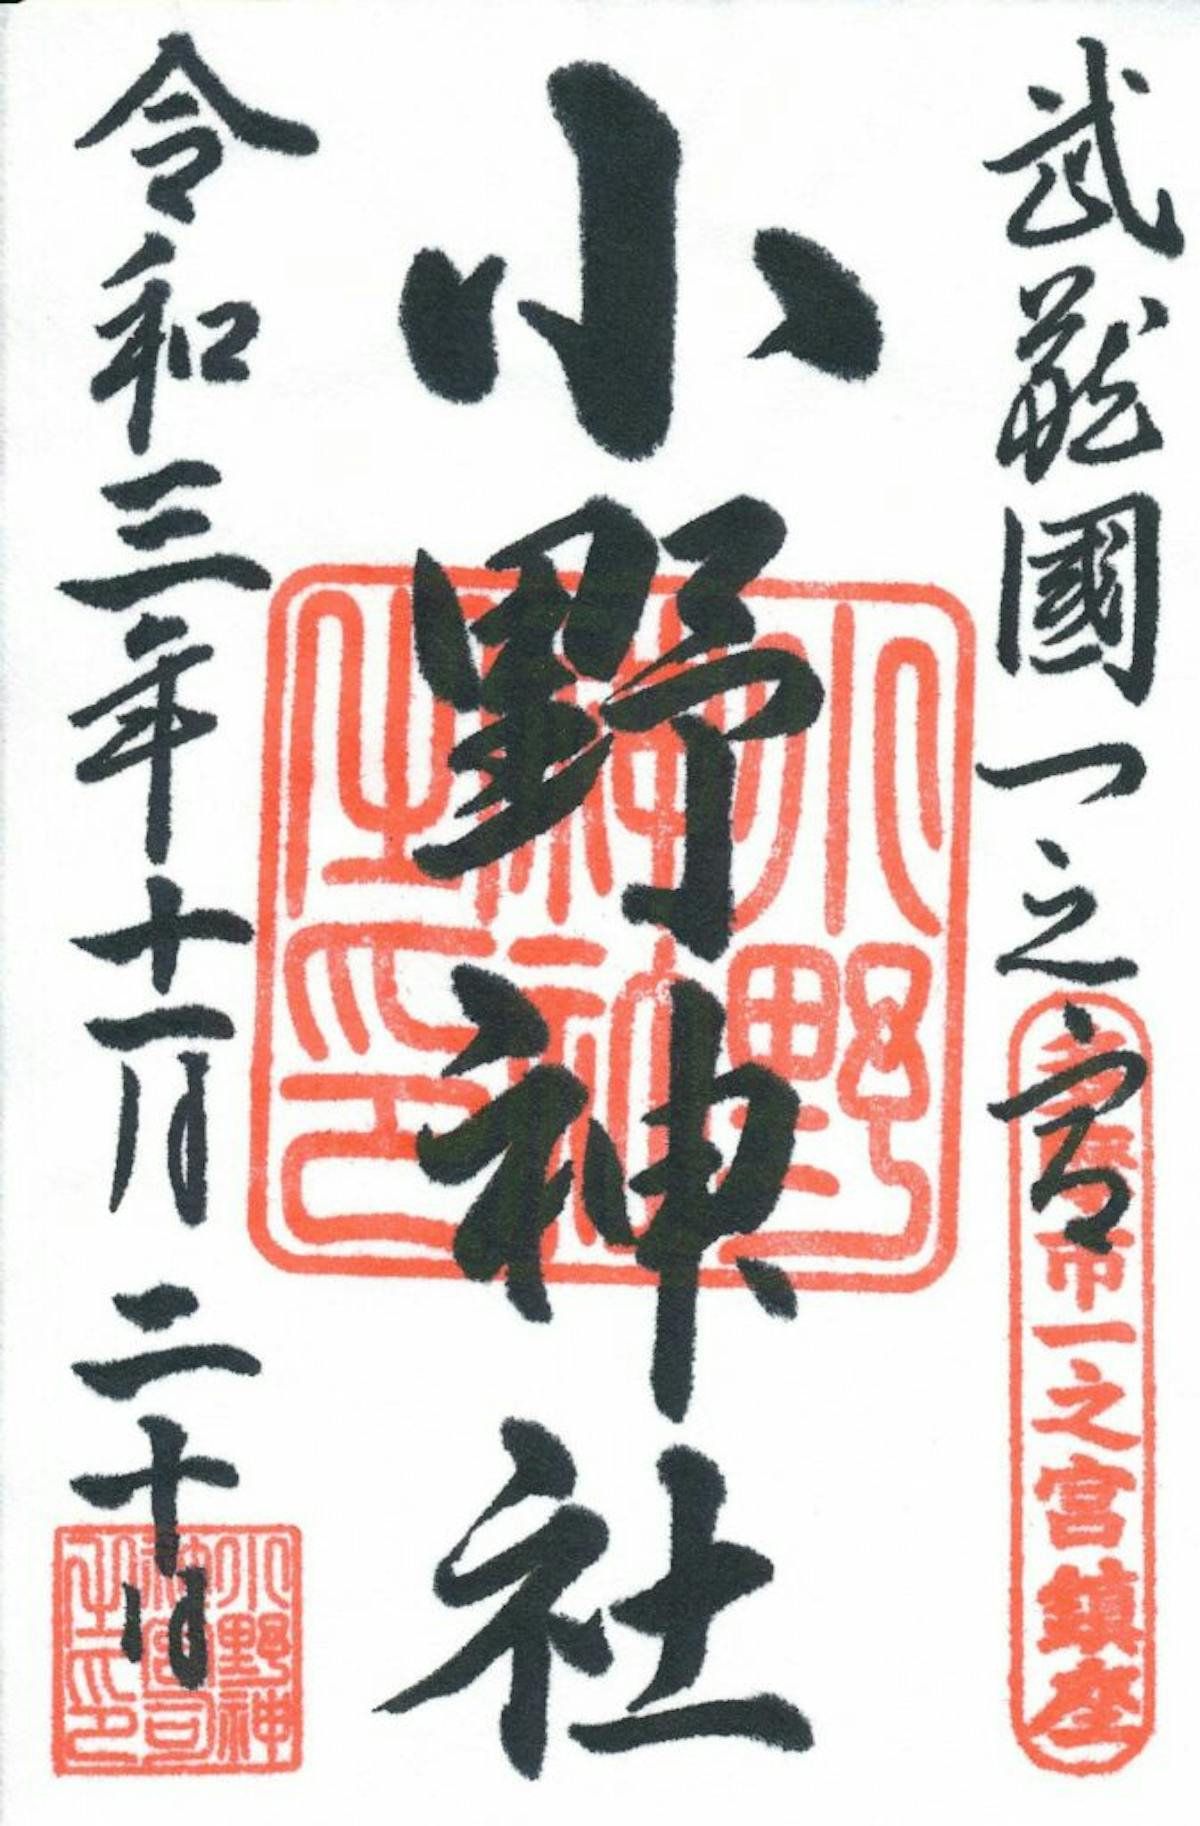 武蔵國一之宮
多摩市一之宮鎮座
小野神社
小野神社之印
令和三年十一月二十日
小野神社宮司之印